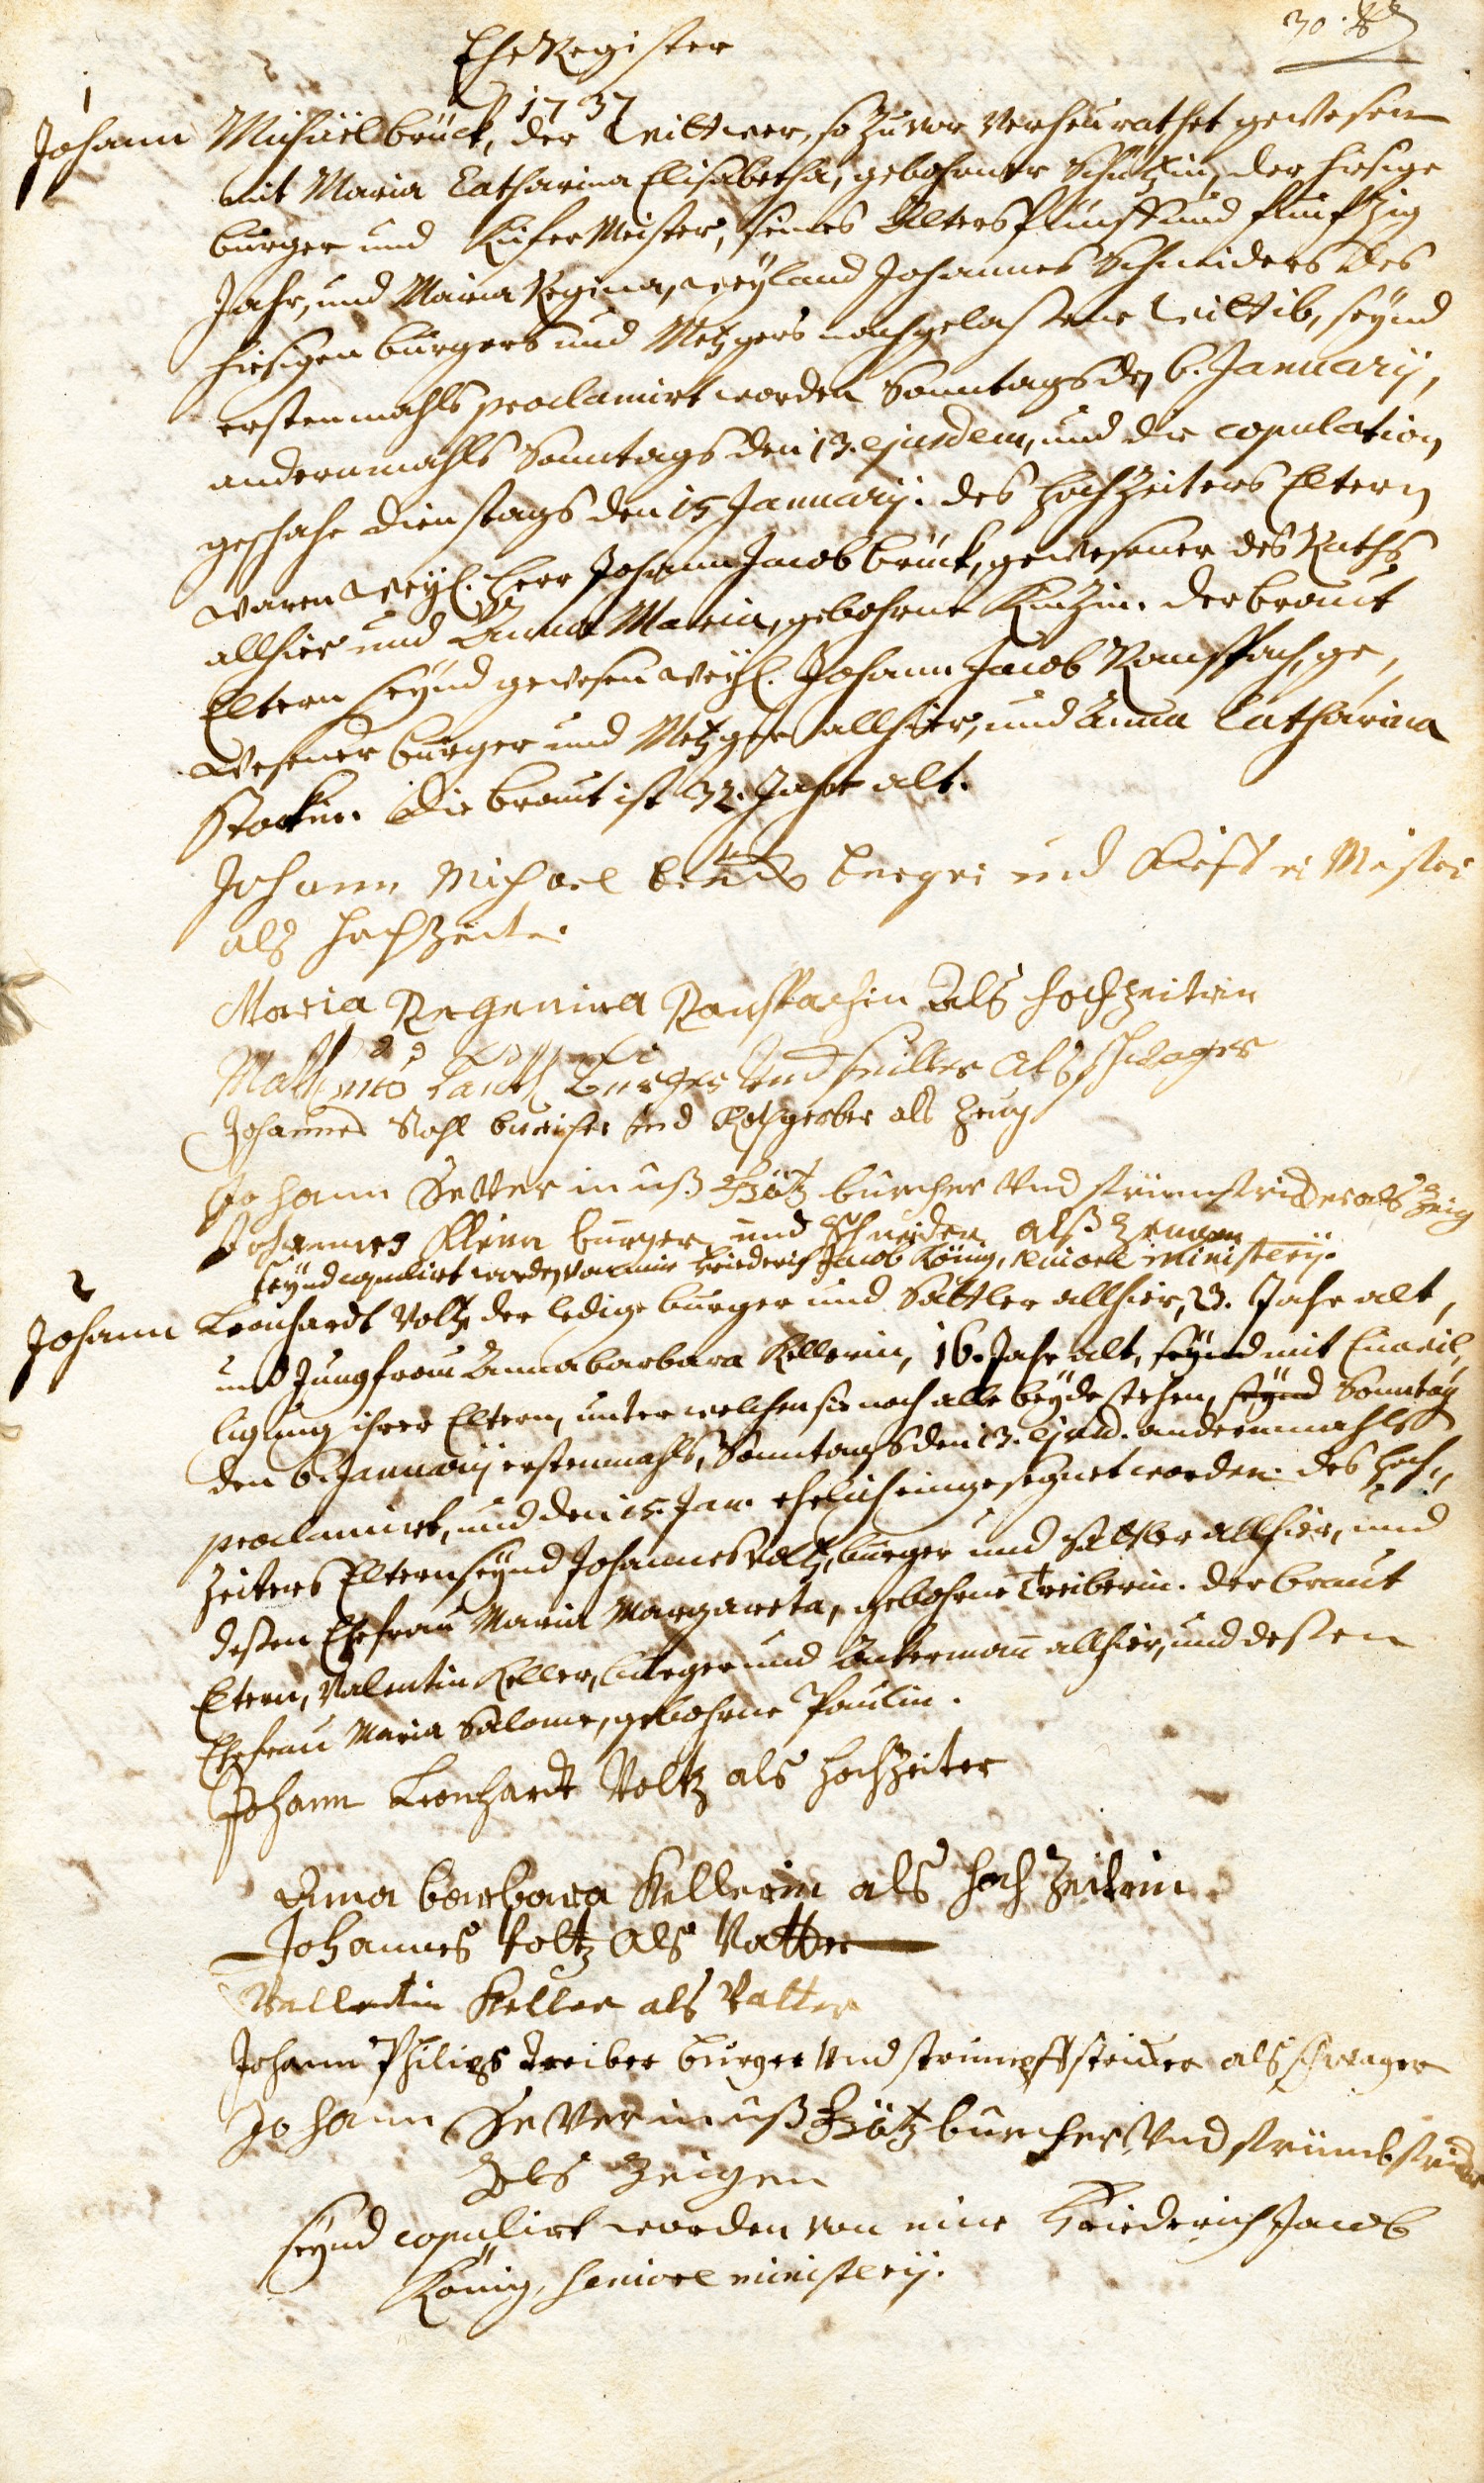 Ehe Register
1737
1
Johann Michäel brück, der Wittwer, so zuvor verheurathet gewesen
mit Maria Catharina Elisabetha, gebohrner Schützin, der hiesige
burger und Küfer Meister, seines Alters fünff und fünfzig
Jahr, und Maria Regina, weyland Johannes Schneiders des
hiesigen burgers und Metzgers nachgelaßene Wittib, seynd
erstenmahls proclamirt worden Sonntags den 6. Januarij,
andernmahls Sonntags den 13. ejusdem, und die copulation
geschahe Dienstags den 15 Januarij. des Hochzeiters Eltern
waren weyl. Herr Johann Jacob brück, gewesener des Raths
allhier und Anna Maria, gebohrne Kuhin. der braut
Eltern seynd gewesen weyl. Johann Jacob Ranspach, ge-
wesener burger und Metzger allhier, und Anna Catharina
Storkin. Die braut ist 32. Jahr alt.
Johann Michael brück burger und Kieffer Meister
als Hochzeiter
Maria Regenina Ranspachin Als Hochzeiterin
burger Und als schwager
Johannes Stahl burger und Rothgerber als Zeug
Johann Severinuß Götz burcher Vnd strimstrider als Zeig
Johannes Klein burger und Schneider alß Zeugen
seynd copulirt worden von mir Friederich Jacob König, seniore ministerij.
2
Johann Leonhardt Voltz der ledige burger und Sattler allhier, 23. Jahr alt,
und Jungfrau Anna barbara Kellerin, 16. Jahr alt, seynd mit Einwil-
ligung ihrer Eltern, unter welchen sie noch alle beyde stehen, seynd Sonntag
den 6. Januarij erstenmahls, Sonntags den 13. ejusd. andernmahls
proclamirt, und den 15. Jan. ehelich eingesegnet worden. des Hoch-
zeiters Eltern seynd Johannes Voltz, burger und Sattler allhier, und
deßen Ehefrau Maria Margareta, gebohrne Treiberin. der braut
Eltern, Valentin Keller, burger und Ackermañ allhier, und deßen
Ehefrau Maria Salome, gebohrne Paulin.
Johann Leonhardt Voltz als Hochzeiter
Anna barbara Kellerin als Hochzeiterin
Johannes Voltz Als Vatter
Vallentin Keller als Vatter
Johann Philips Treiber burger Und strimpfstricker als schwager
Johann Severinuß Götz burcher Vnd strimbstrider
Als Zeigen
seynd copulirt worden von mir Friederich Jacob
König, seniore ministerij.